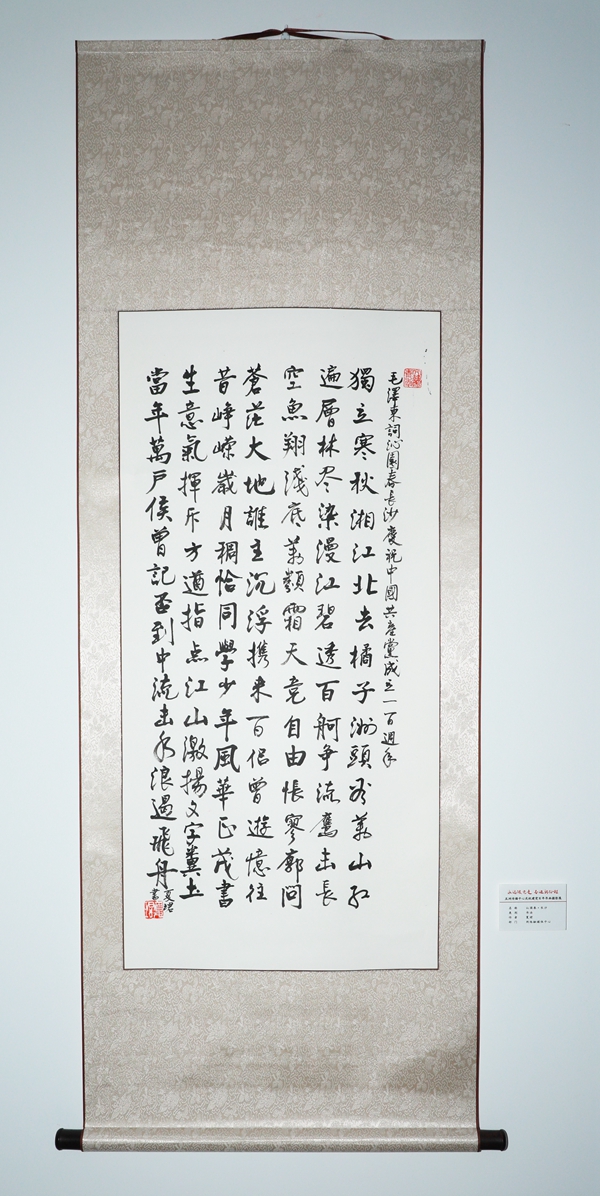 毛澤東詞沁園春長沙慶祝中國共產黨成立一百週年
獨立寒秋湘江北去橘子洲頭看萬山紅
遍層林尽染漫江碧透百舸争流鷹击長
空魚翔淺底萬類霜天竞自由悵寥廓问
蒼茫大地誰主沉浮携来百侶曾遊憶往
昔崢嶸歲月稠恰同學少年風華正茂書
生意氣揮斥方遒指点江山激揚文字糞土
當年萬戶侯曾記否到中流击水浪遏飛舟